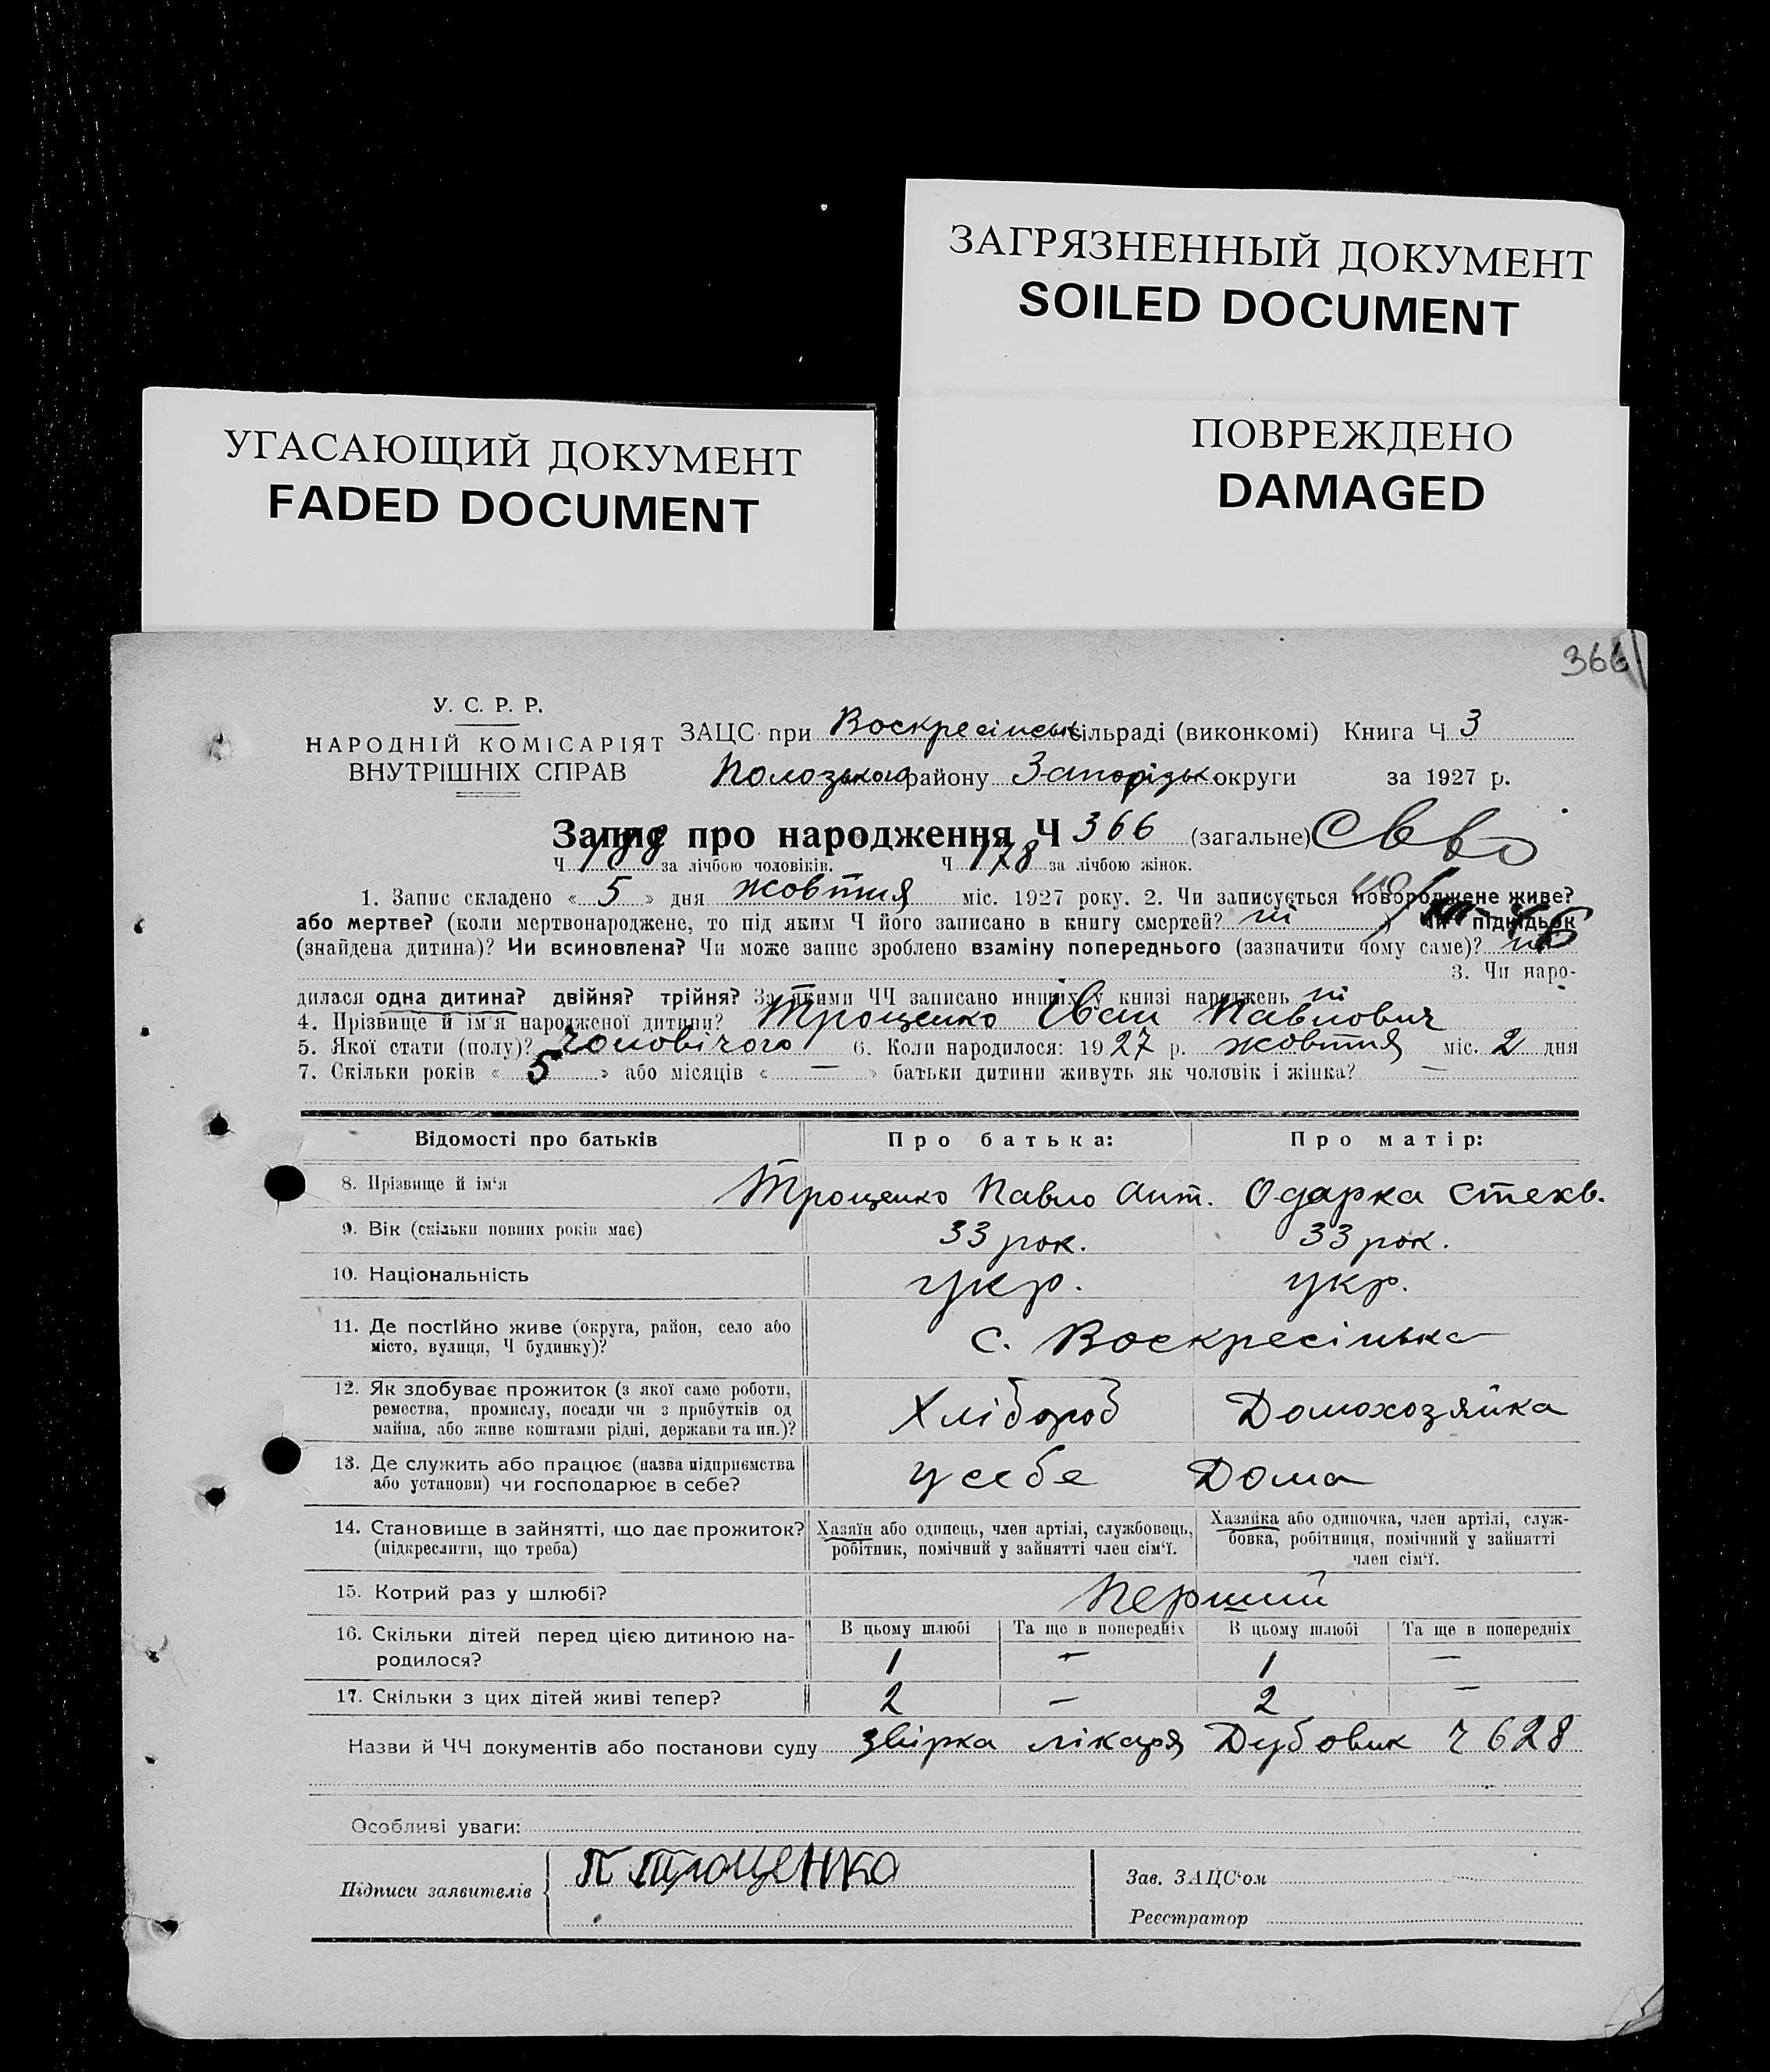 ЗАГРЯЗНЕННЫЙ ДОКУМЕНТ
SOILED DOCUMENT
УГАСАЮЩИЙ ДОКУМЕНТ
FADED DOCUMENT
ПОВРЕЖДЕНО
DAMAGED
366
У. С. Р. Р.
НАРОДНІЙ КОМІСАРІЯТ
ВНУТРІШНІХ СПРАВ
ЗАЦС при Воскресінськ сільраді (виконкомі) Книга Ч 3
Полозького району Запорізьк округи за 1927 р.
Запис про народження Ч 366 (загальне)
Ч 188 за лічбою чоловіків. Ч 178 за лічбою жінок.
1. Запис складено « 5 » дня жовтня міс. 1927 року. 2. Чи записується новороджене живе?
або мертве? (коли мертвонароджене, то під яким Ч його записано в книгу смертей? ні ) Чи підкідьок
(знайдена дитина)? Чи всиновлена? Чи може запис зроблено взаміну попереднього (зазначити чому саме)? ні
3. Чи наро-
дилася одна дитина? двійня? трійня? За якими ЧЧ записано инших у книзі народжень ні
4. Прізвище й ім'я народженої дитини? Трощенко Іван Павлович
5. Якої стати (полу)? чоловічого 6. Коли народилося: 1927 р. жовтня міс. 2 дня
7. Скільки років « 5 » або місяців « — » батьки дитини живуть як чоловік і жінка? —
Відомості про батьків Про батька: Про матір:
8. Прізвище й ім'я Трощенко Павло Ант. Одарка Стехв.
9. Вік (скільки повних років має) 33 рок. 33 рок.
10. Національність укр. укр.
11. Де постійно живе (округа, район, село або
місто, вулиця, Ч будинку)? с. Воскресінька
12. Як здобуває прожиток (з якої саме роботи,
ремества, промислу, посади чи з прибутків од
майна, або живе коштами рідні, держави та ин.)? Хлібороб Домохозяйка
13. Де служить або працює (назва підприємства
або установи) чи господарює в себе? у себе Дома
14. Становище в зайнятті, що дає прожиток?
(підкреслити, що треба)
Хазяїн або одинець, член артілі, службовець,
робітник, помічний у зайнятті член сім'ї.
Хазяйка або одиночка, член артілі, служ-
бовка, робітниця, помічний у зайнятті
член сім'ї.
15. Котрий раз у шлюбі? Перший
16. Скільки дітей перед цією дитиною на-
родилося?
В цьому шлюбі Та ще в попередніх В цьому шлюбі Та ще в попередніх
1 — 1 —
17. Скільки з цих дітей живі тепер? 2 — 2 —
Назви й ЧЧ документів або постанови суду звірка лікаря Дубовик ч 628
Особливі уваги:
Підписи заявителів П Трощенко
Зав. ЗАЦС'ом
Реєстратор